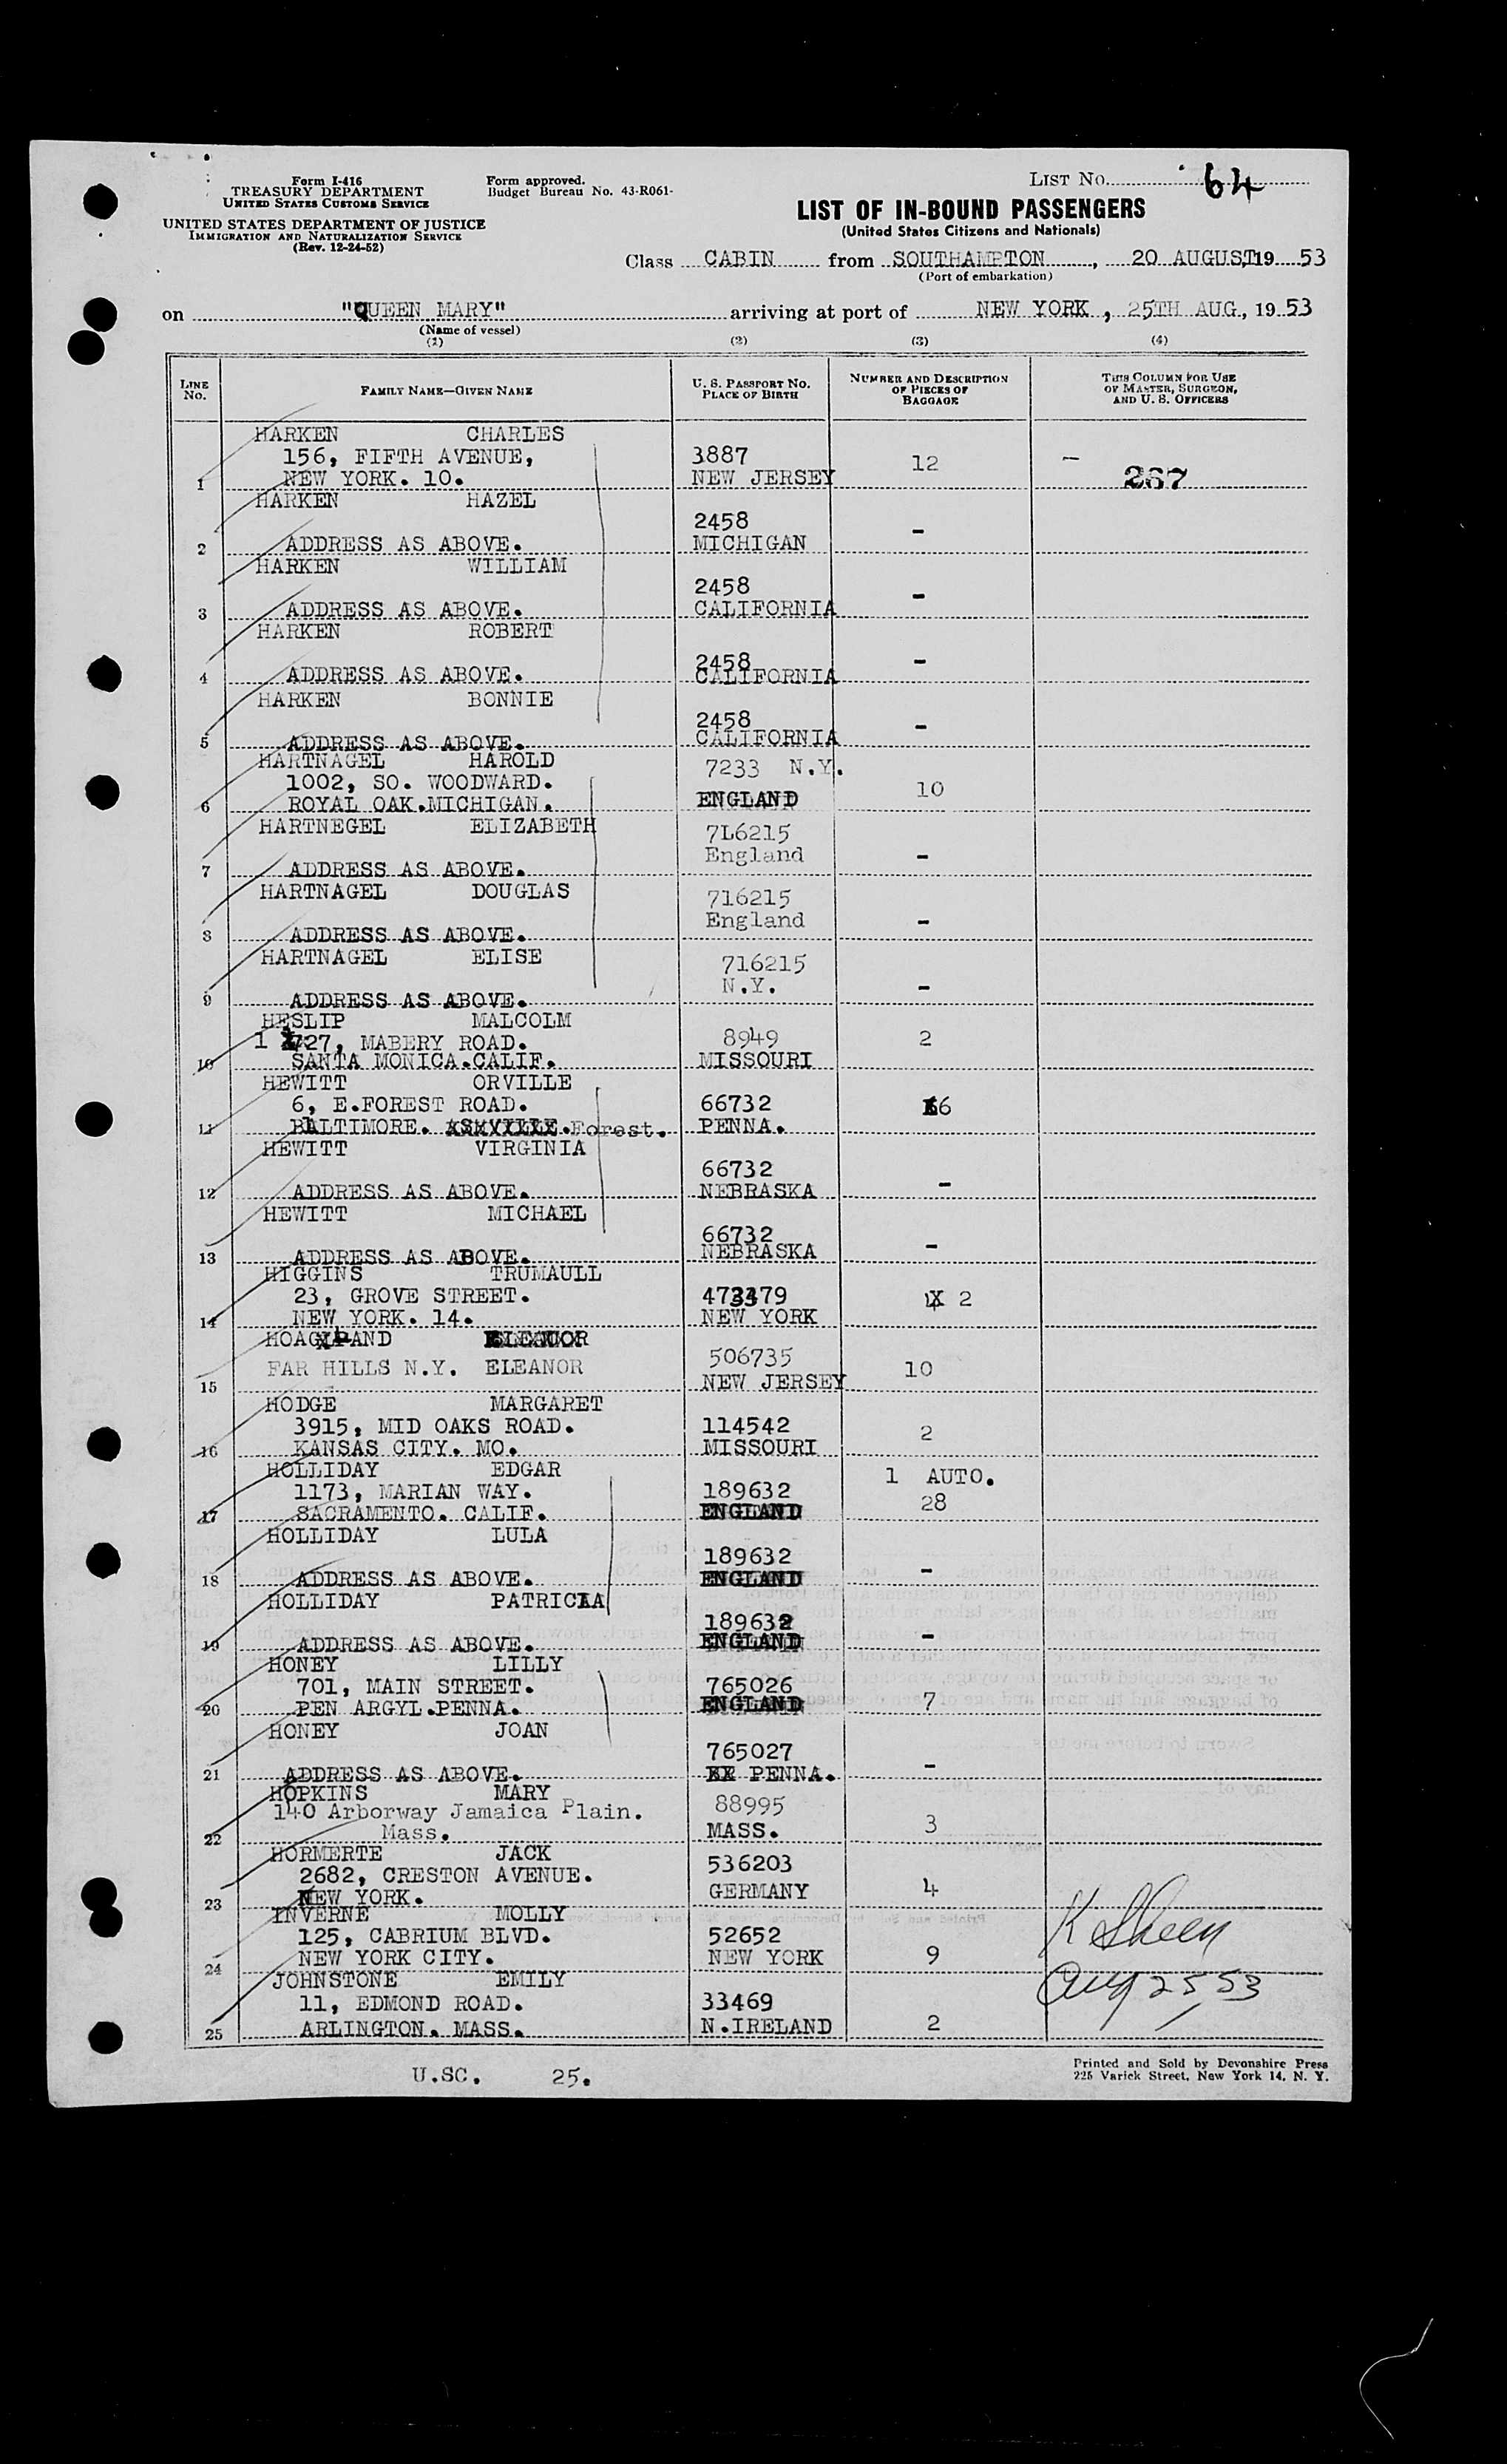 Form I-416
TREASURY DEPARTMENT
UNITED STATES CUSTOMS SERVICE
UNITED STATES DEPARTMENT OF JUSTICE
IMMIGRATION AND NATURALIZATION SERVICE
(Rev. 12-24-52)
Form approved.
Budget Bureau No. 43-R061-
LIST NO. 64
LIST OF IN-BOUND PASSENGERS
(United States Citizens and Nationals)
Class CABIN from SOUTHAMPTON, 20 AUGUST, 19 53
(Port of embarkation)
on "QUEEN MARY" arriving at port of NEW YORK, 25TH AUG., 19 53
(Name of vessel)
(1) (2) (3) (4)
LINE NO. FAMILY NAME—GIVEN NAME U. S. PASSPORT NO. PLACE OF BIRTH NUMBER AND DESCRIPTION OF PIECES OF BAGGAGE THIS COLUMN FOR USE OF MASTER, SURGEON, AND U. S. OFFICERS
HARKEN CHARLES
156, FIFTH AVENUE, 3887 12 – 267
1 NEW YORK. 10. NEW JERSEY
HARKEN HAZEL
2458 -
2 ADDRESS AS ABOVE. MICHIGAN
HARKEN WILLIAM
2458 -
3 ADDRESS AS ABOVE. CALIFORNIA
HARKEN ROBERT
2458 -
4 ADDRESS AS ABOVE. CALIFORNIA
HARKEN BONNIE
2458 -
5 ADDRESS AS ABOVE. CALIFORNIA
HARTNAGEL HAROLD 7233 N.Y.
1002, SO. WOODWARD. 10
6 ROYAL OAK.MICHIGAN. ENGLAND
HARTNEGEL ELIZABETH 7L6215
England -
7 ADDRESS AS ABOVE.
HARTNAGEL DOUGLAS 716215
England -
8 ADDRESS AS ABOVE.
HARTNAGEL ELISE 716215
N.Y. -
9 ADDRESS AS ABOVE.
HESLIP MALCOLM
1 727, MABERY ROAD. 8949 2
10 SANTA MONICA.CALIF. MISSOURI
HEWITT ORVILLE
6, E.FOREST ROAD. 66732 6
11 BILTIMORE. Forest. PENNA.
HEWITT VIRGINIA
66732 -
12 ADDRESS AS ABOVE. NEBRASKA
HEWITT MICHAEL
66732 -
13 ADDRESS AS ABOVE. NEBRASKA
HIGGINS TRUMAULL
23, GROVE STREET. 473379 2
14 NEW YORK. 14. NEW YORK
HOAGLAND ELEANOR
FAR HILLS N.Y. ELEANOR 506735 10
15 NEW JERSEY
HODGE MARGARET
3915, MID OAKS ROAD. 114542 2
16 KANSAS CITY. MO. MISSOURI
HOLLIDAY EDGAR 1 AUTO.
1173, MARIAN WAY. 189632 28
17 SACRAMENTO. CALIF. ENGLAND
HOLLIDAY LULA
189632 -
18 ADDRESS AS ABOVE. ENGLAND
HOLLIDAY PATRICIA
189632 -
19 ADDRESS AS ABOVE. ENGLAND
HONEY LILLY
701, MAIN STREET. 765026 7
20 PEN ARGYL.PENNA. ENGLAND
HONEY JOAN
765027 -
21 ADDRESS AS ABOVE. PENNA.
HOPKINS MARY
140 Arborway Jamaica Plain. 88995 3
22 Mass. MASS.
HORMERTE JACK
2682, CRESTON AVENUE. 536203 4
23 NEW YORK. GERMANY
INVERNE MOLLY
125, CABRIUM BLVD. 52652 9
24 NEW YORK CITY. NEW YORK
JOHNSTONE EMILY
11, EDMOND ROAD. 33469
25 ARLINGTON. MASS. N.IRELAND 2
K Sheen
Aug 25 53
U.SC. 25.
Printed and Sold by Devonshire Press
225 Varick Street, New York 14, N. Y.